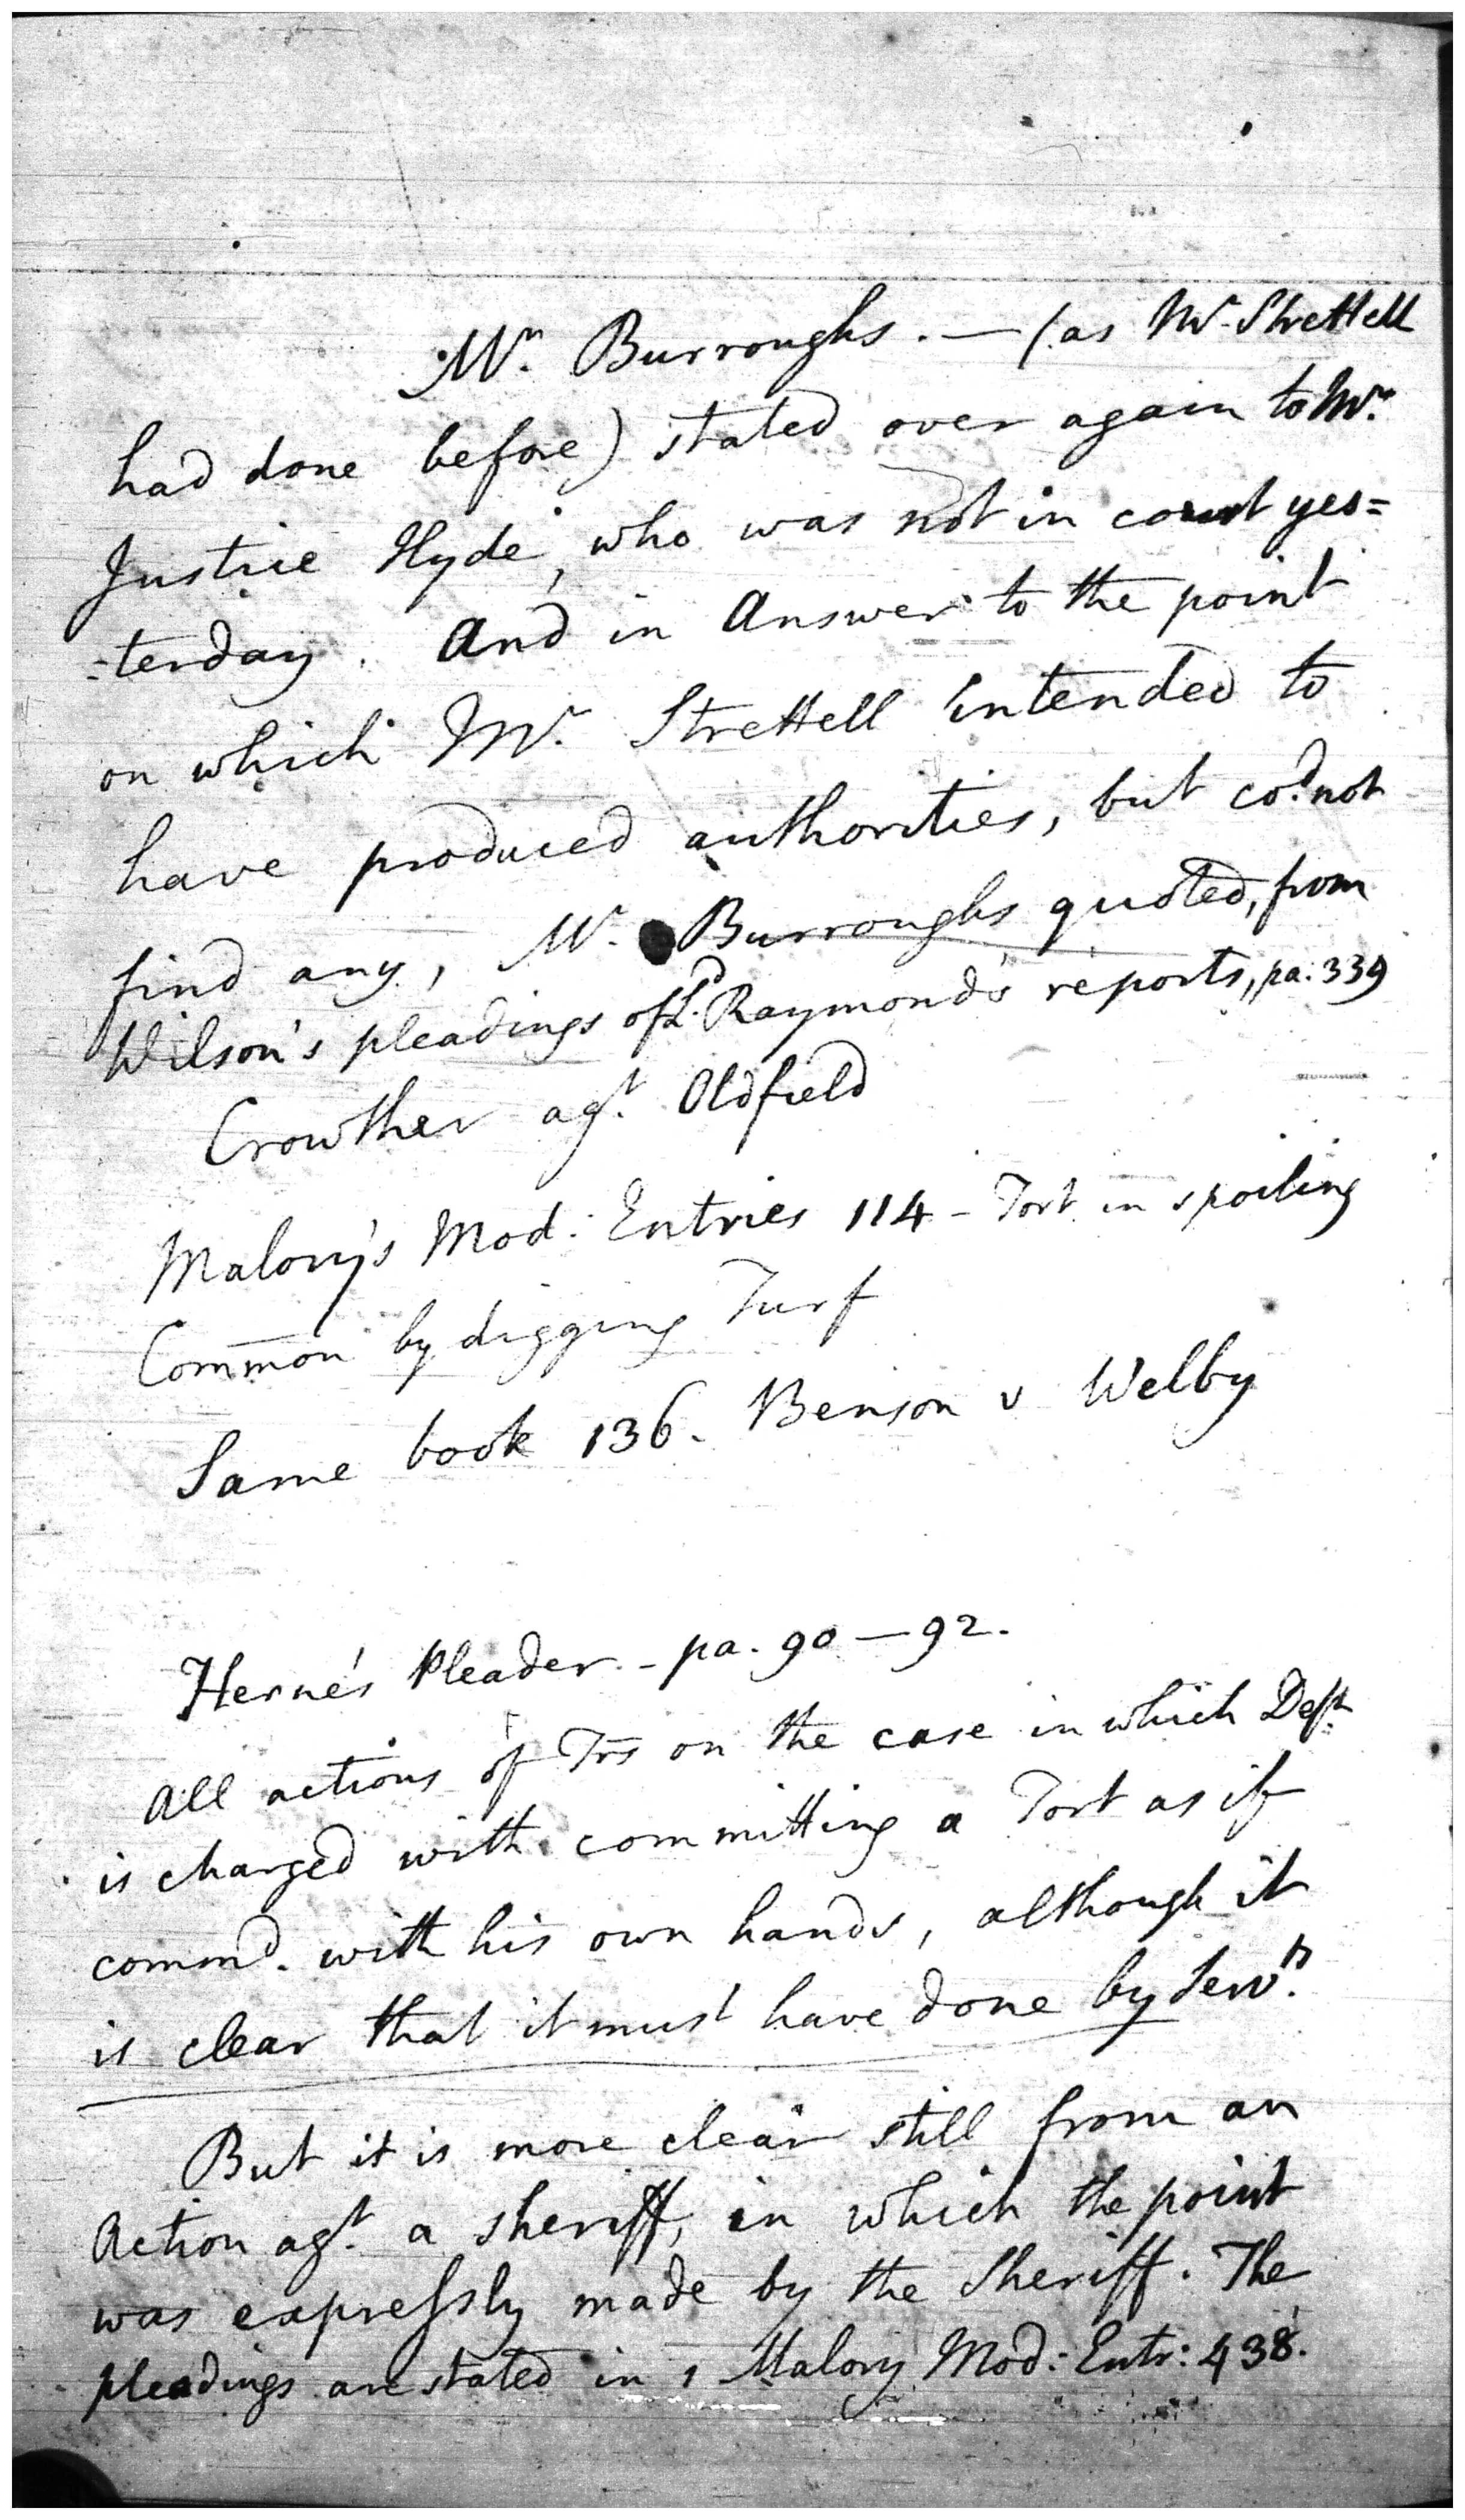 Mr. Burroughs. — (as Mr. Strettell
had done before) stated over again to Mr.
Justice Hyde, who was not in court yes=
=terday. And in Answer to the point
on which Mr. Strettell intended to
have produced authorities, but cod. not
find any, Mr. Burroughs quoted, from
Wilson's pleadings of Ld. Raymond's reports, pa: 339
Crowther agt. Oldfield
Malory's Mod: Entries 114 - Tort in spoiling
Common by digging Turf
Same book 136. Benson v Welby
Herne's Pleader - pa. 90 — 92.
All actions of Trs on the case in which Deft.
is charged with committing a Tort as if
commd. with his own hands, although it
is clear that it must have done by Servts.
But it is more clear still from an
Action agt. a sheriff, in which the point
was expressly made by the Sheriff. The
pleadings are stated in 1 Malory Mod: Entr: 438.